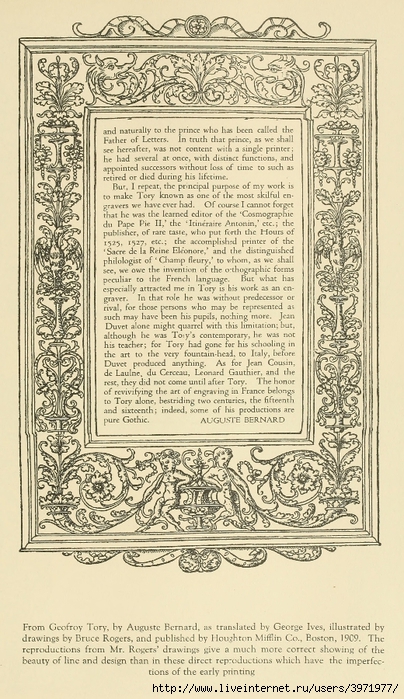 and naturally to the prince who has been called the
Father of Letters. In truth that prince, as we shall
see hereafter, was not content with a single printer;
he had several at once, with distinct functions, and
appointed successors without loss of time to such as
retired or died during his lifetime.
But, I repeat, the principal purpose of my work is
to make Tory known as one of the most skilful en-
gravers we have ever had. Of course I cannot forget
that he was the learned editor of the 'Cosmographie
du Pape Pie II,' the 'Itinéraire Antonin,' etc.; the
publisher, of rare taste, who put forth the Hours of
1525, 1527, etc.; the accomplished printer of the
'Sacre de la Reine Eléonore,' and the distinguished
philologist of 'Champ fleury,' to whom, as we shall
see, we owe the invention of the orthographic forms
peculiar to the French language. But what has
especially attracted me in Tory is his work as an en-
graver. In that role he was without predecessor or
rival, for those persons who may be represented as
such may have been his pupils, nothing more. Jean
Duvet alone might quarrel with this limitation; but,
although he was Tory's contemporary, he was not
his teacher; for Tory had gone for his schooling in
the art to the very fountain-head, to Italy, before
Duvet produced anything. As for Jean Cousin,
de Laulne, du Cerceau, Leonard Gauthier, and the
rest, they did not come until after Tory. The honor
of revivifying the art of engraving in France belongs
to Tory alone, bestriding two centuries, the fifteenth
and sixteenth; indeed, some of his productions are
pure Gothic. AUGUSTE BERNARD
From Geofroy Tory, by Auguste Bernard, as translated by George Ives, illustrated by
drawings by Bruce Rogers, and published by Houghton Mifflin Co., Boston, 1909. The
reproductions from Mr. Rogers' drawings give a much more correct showing of the
beauty of line and design than in these direct reproductions which have the imperfec-
tions of the early printing
http://www.liveinternet.ru/users/3971977/